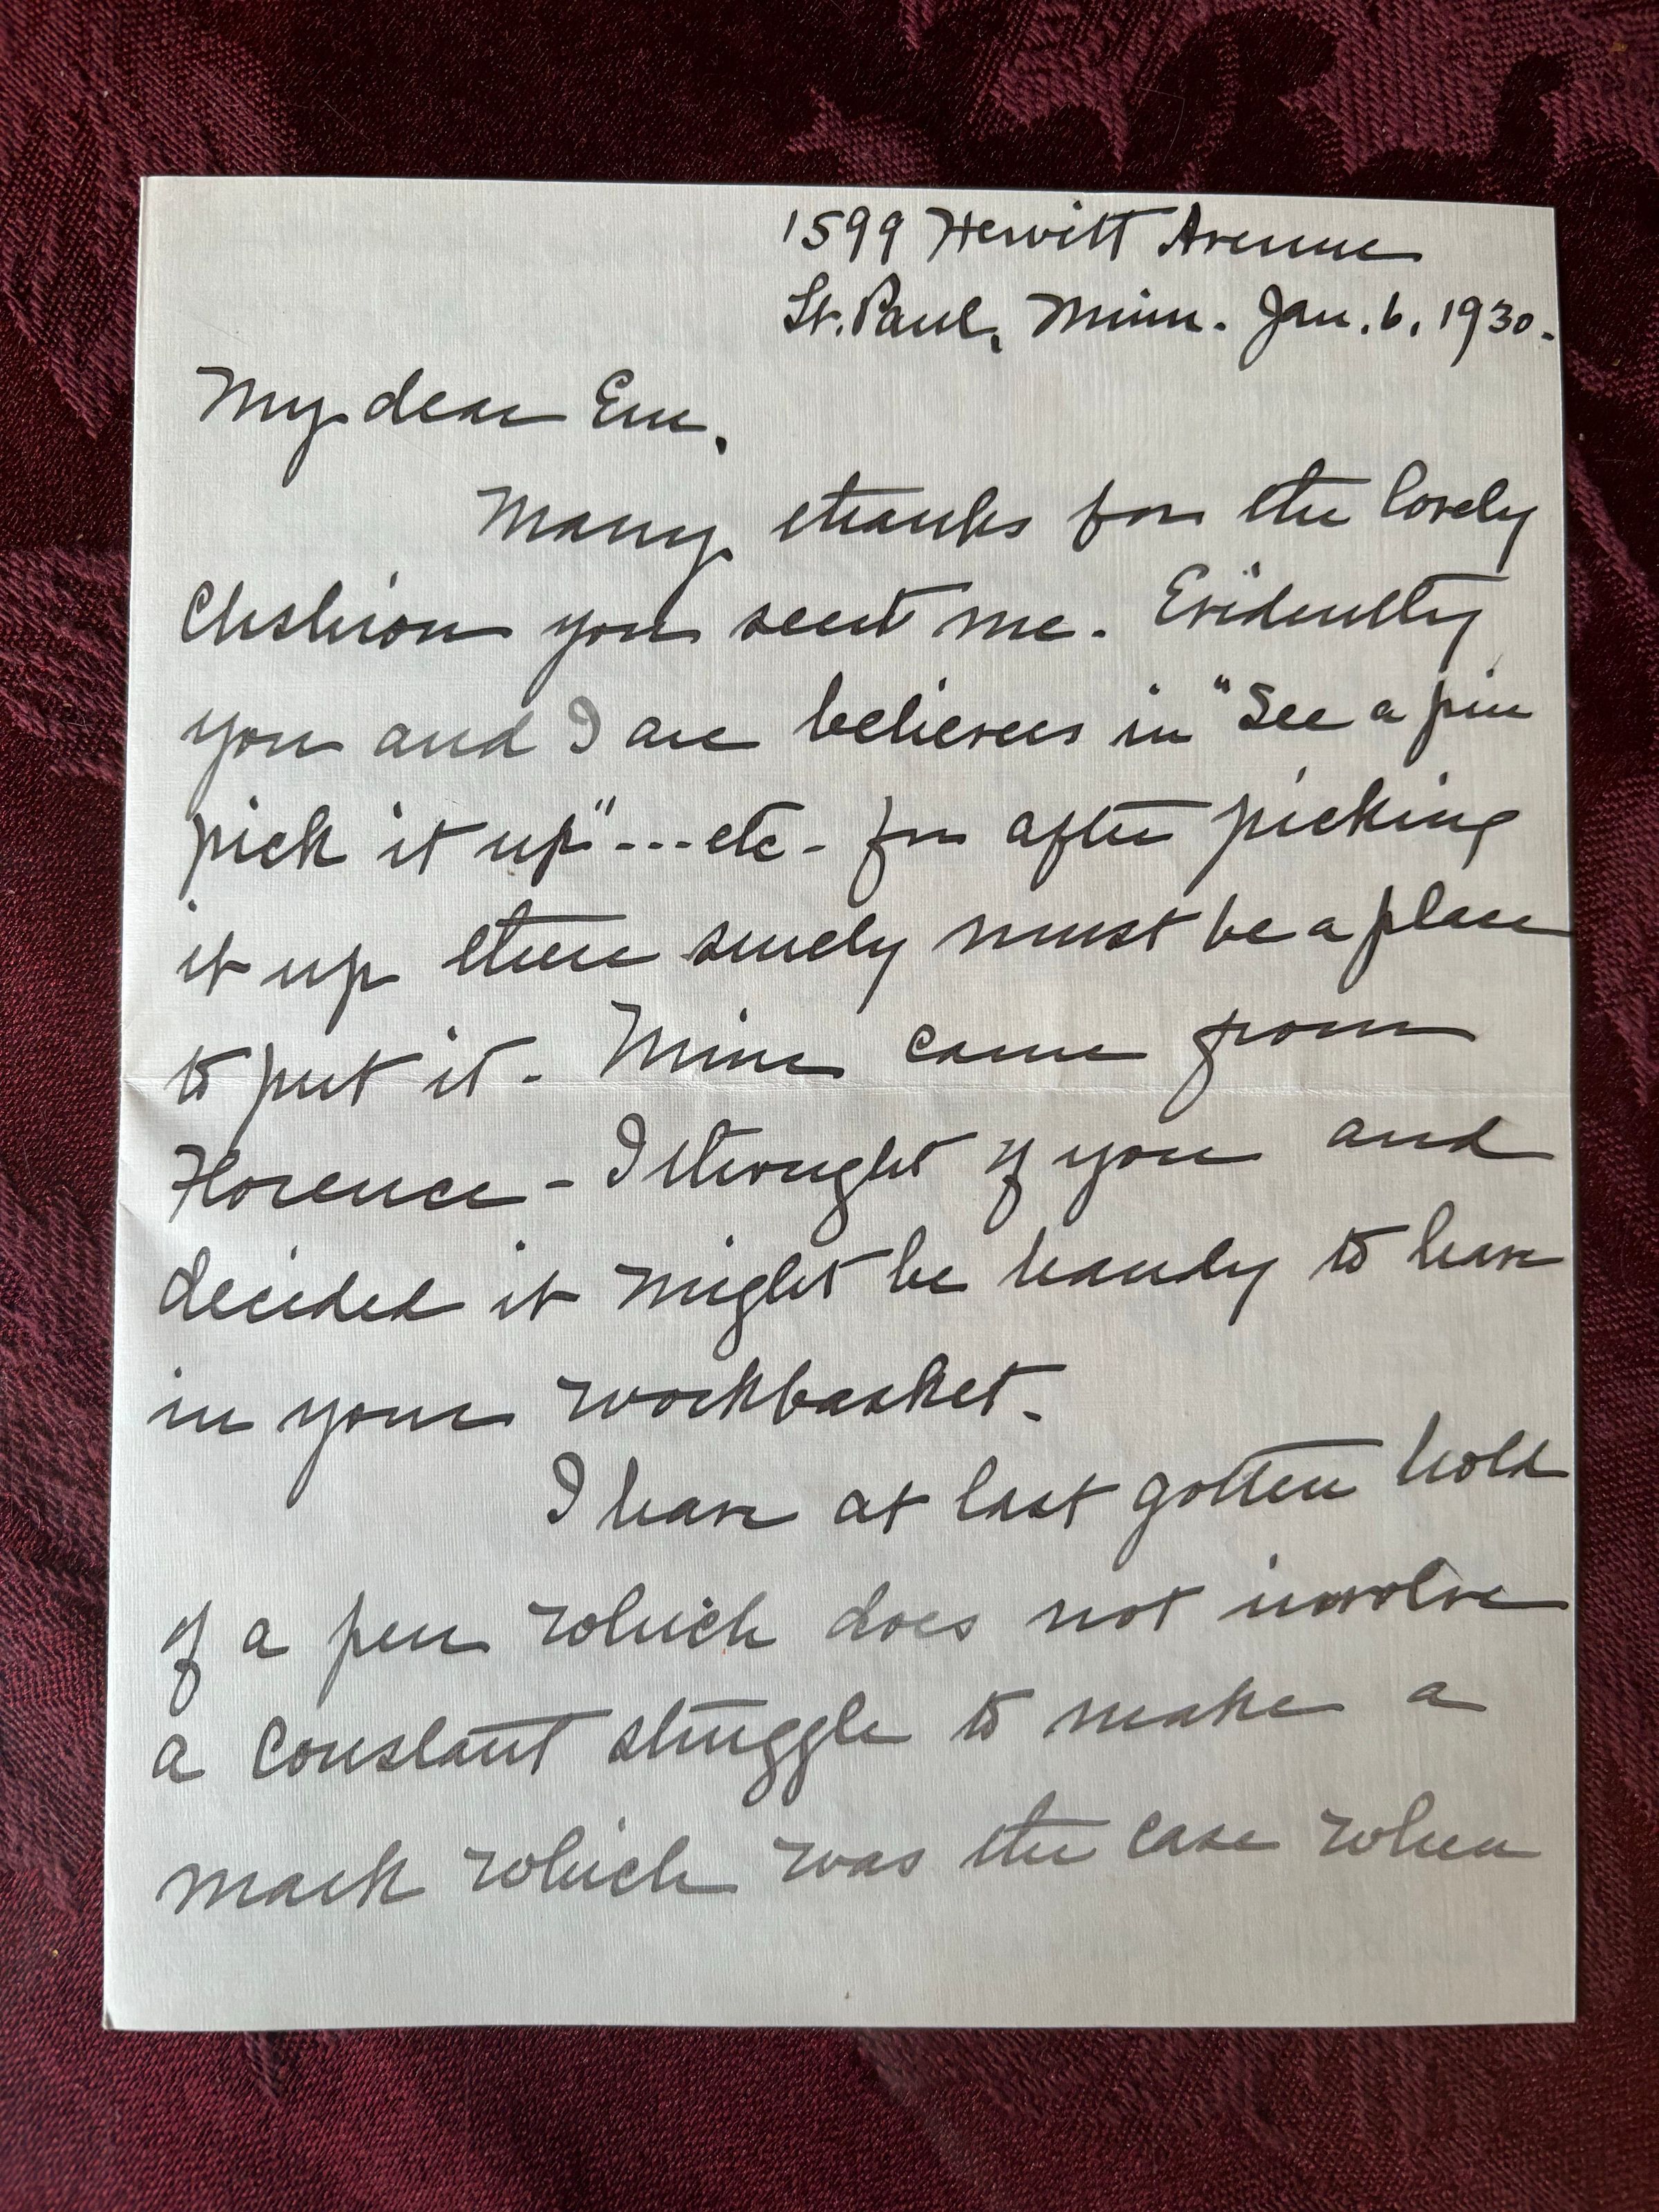 1599 Hewitt Avenue
St. Paul, Minn. Jan. 6, 1930.
My dear Em,
Many thanks for the lovely
Cushion you sent me. Evidently
you and I are believers in "See a pin
pick it up"---etc- for after picking
it up there surely must be a place
to put it. Mine came from
Florence - I thought of you and
decided it might be handy to have
in your workbasket.
I have at last gotten hold
of a pen which does not involve
a constant struggle to make a
mark which was the case when